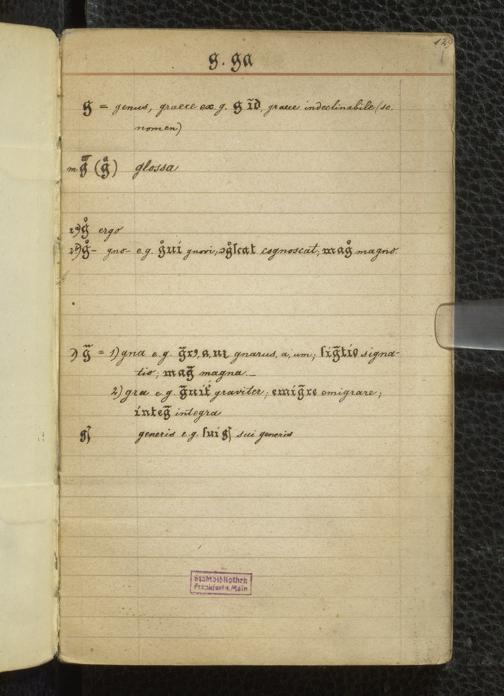 g. ga
g = genus, graece ex. g. g īd. graece indeclinabile (sc.
nomen)
m g̃ (g̊) glossa
1) g̊ ergo
2) g̊- gno- e.g. g̊ui gnovi, ꝯg̊ſcat cognoscat; mag̊ magno.
g̃ = 1) gna e.g. g̃rꝰ, a, um gnarus, a, um; ſig̃tio signa-
tio; mag̃ magna. _
2) gra e.g. g̃uit̃ graviter; emig̃re emigrare;
integ̃ integra
generis e.g. ſui sui generis
Stadtbibliothek
Frankfurt a. Main